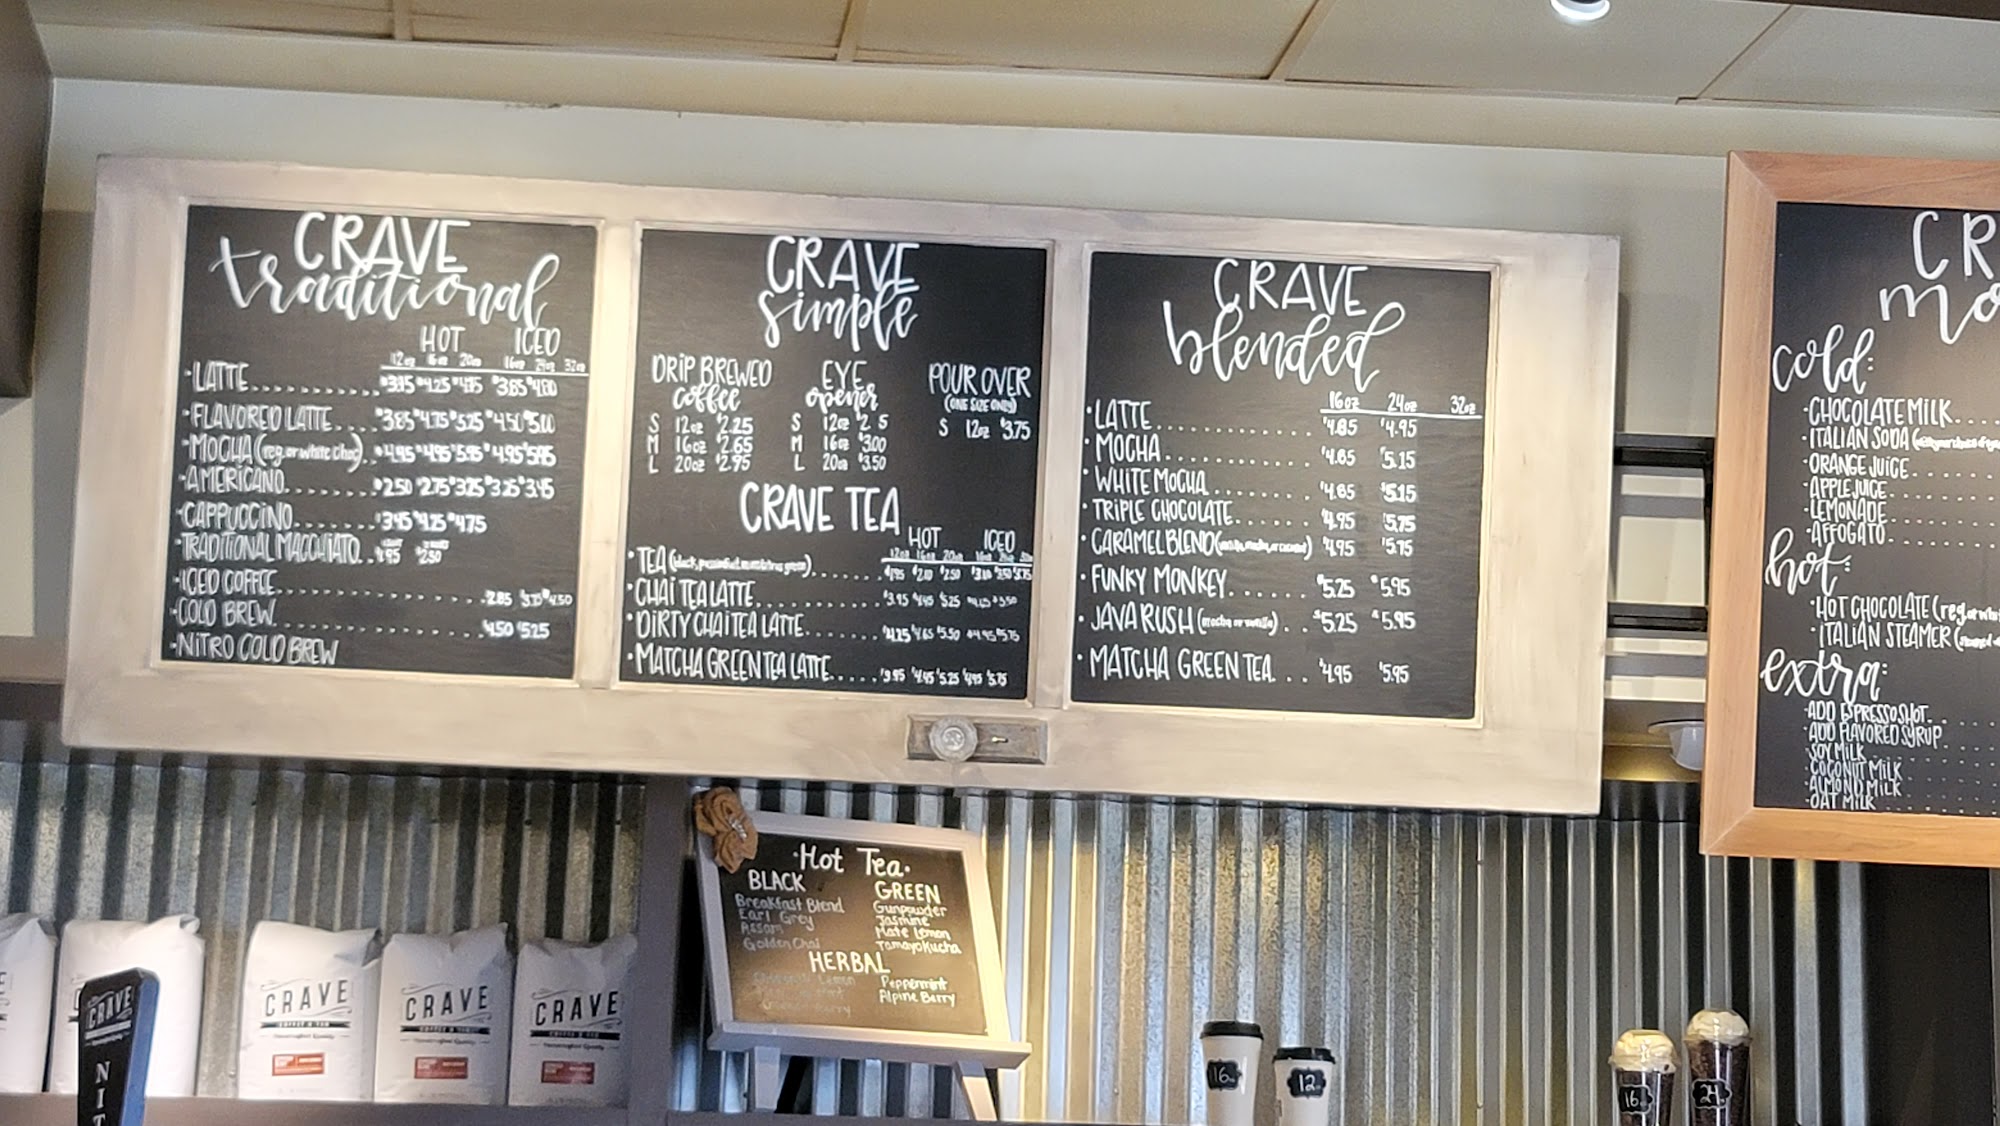 CRAVE
traditional
HOT ICED
12oz 16oz 20oz 16oz 24oz 32oz
·LATTE....... $3.75 $4.25 $4.75 $3.85 $4.80
·FLAVORED LATTE... $3.85 $4.75 $5.25 $4.50 $5.00
·MOCHA (reg. or white choc)... $4.95 $5.95 $4.95 $5.95
·AMERICANO......... $2.50 $2.75 $3.25 $3.25 $3.45
·CAPPUCCINO....... $3.45 $4.25 $4.75
·TRADITIONAL MACCHIATO.. $1.95 $2.50
·ICED COFFEE ............. 2.85 $4.50
·COLD BREW............... $4.50 $5.25
·NITRO COLD BREW
CRAVE
simple
DRIP BREWED
coffee
S 12oz $2.25
M 16oz $2.65
L 20oz $2.95
EYE
opener
S 12oz
M 16oz $3.00
L 20oz $3.50
POUR OVER
(ONE SIZE ONLY)
S 12oz $3.75
CRAVE TEA
HOT ICED
12oz 16oz 20oz 16oz 24oz
·TEA
·CHAI TEA LATTE............ $3.95 $4.45 $5.25
·DIRTY CHAI TEA LATTE....... $4.25 $4.65 $5.50 $4.95 $5.75
·MATCHA GREEN TEA LATTE..... $3.95 $4.45 $5.25 $4.95 $5.75
CRAVE
blended
16oz 24oz 32oz
·LATTE............... $4.85 $4.95
·MOCHA.............. $4.85 $5.15
·WHITE MOCHA........ $4.85 $5.15
·TRIPLE CHOCOLATE...... $4.95 $5.75
·CARAMEL BLEND $4.95 $5.75
·FUNKY MONKEY....... $5.25 $5.95
·JAVA RUSH (mocha or vanilla) . . $5.25 $5.95
·MATCHA GREEN TEA. . . $4.95 $5.95
cold:
·CHOCOLATE MILK..
·ITALIAN SODA
·ORANGE JUICE
·APPLE JUICE
·LEMONADE
·AFFOGATO
hot:
·HOT CHOCOLATE (reg. or
·ITALIAN STEAMER
extra:
·ADD ESPRESSO SHOT..
·ADD FLAVORED SYRUP..
·SOY MILK
·COCONUT MILK
·ALMOND MILK
·OAT MILK
·Hot Tea·
BLACK
Breakfast Blend
Earl Grey
Assam
Golden Chai
GREEN
Gunpowder
Jasmine
Mate Lemon
Tamayokucha
HERBAL
Lemon
Peppermint
Alpine Berry
CRAVE
COFFEE & TEA
CRAVE
COFFEE & TEA
CRAVE
COFFEE & TEA
CRAVE
NIT
16oz
12oz
16oz
24oz